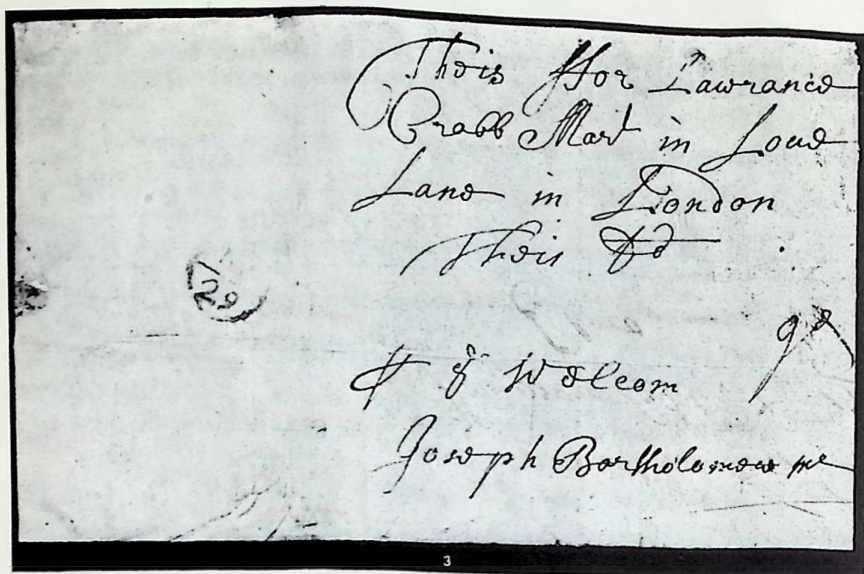 Theis ffor Lawrance
Crabb Mart in Loue
Lane in London
Theis dd
29
9d
p ye Welcom
Joseph Bartholomew mr
3